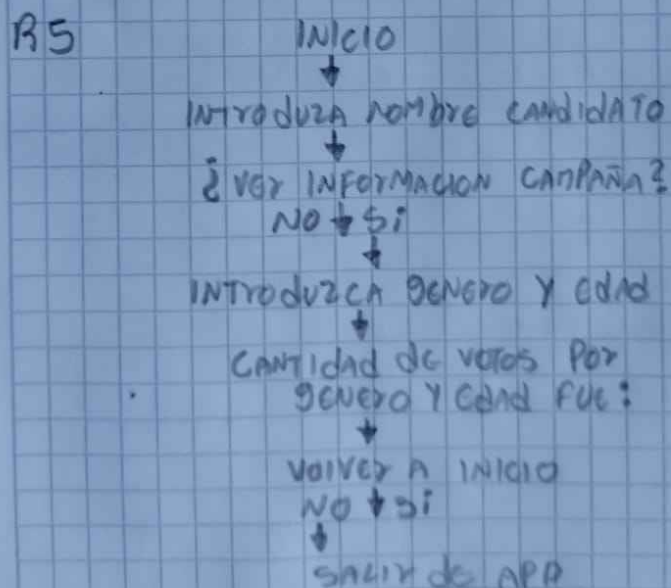 R5
INICIO
INTRODUZA NOMBRE CANDIDATO
¿VER INFORMACION CAMPAÑA?
NO SI
INTRODUZCA GENERO Y EDAD
CANTIDAD DE VOTOS POR
GENERO Y EDAD FUE:
VOLVER A INICIO
NO SI
SALIR DE APP